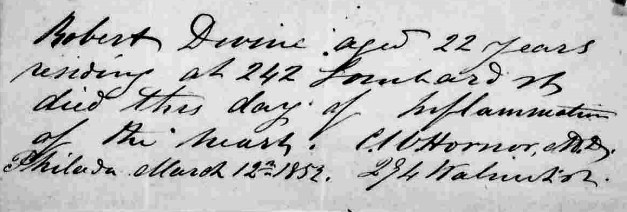 Robert Devine aged 22 years
residing at 242 Lombard St
died this day of Inflammation
of the heart. C.W. Hornor, M.D.
Philada March 12th 1852. 274 Walnut St.